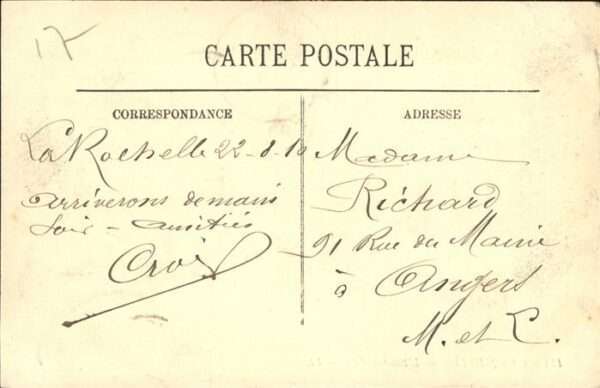 17
CARTE POSTALE
CORRESPONDANCE
La Rochelle 22-8-10
Arriverons demain
soir - amitiés
Croix
ADRESSE
Madame
Richard
91 Rue du Maine
à Angers
M. et L.